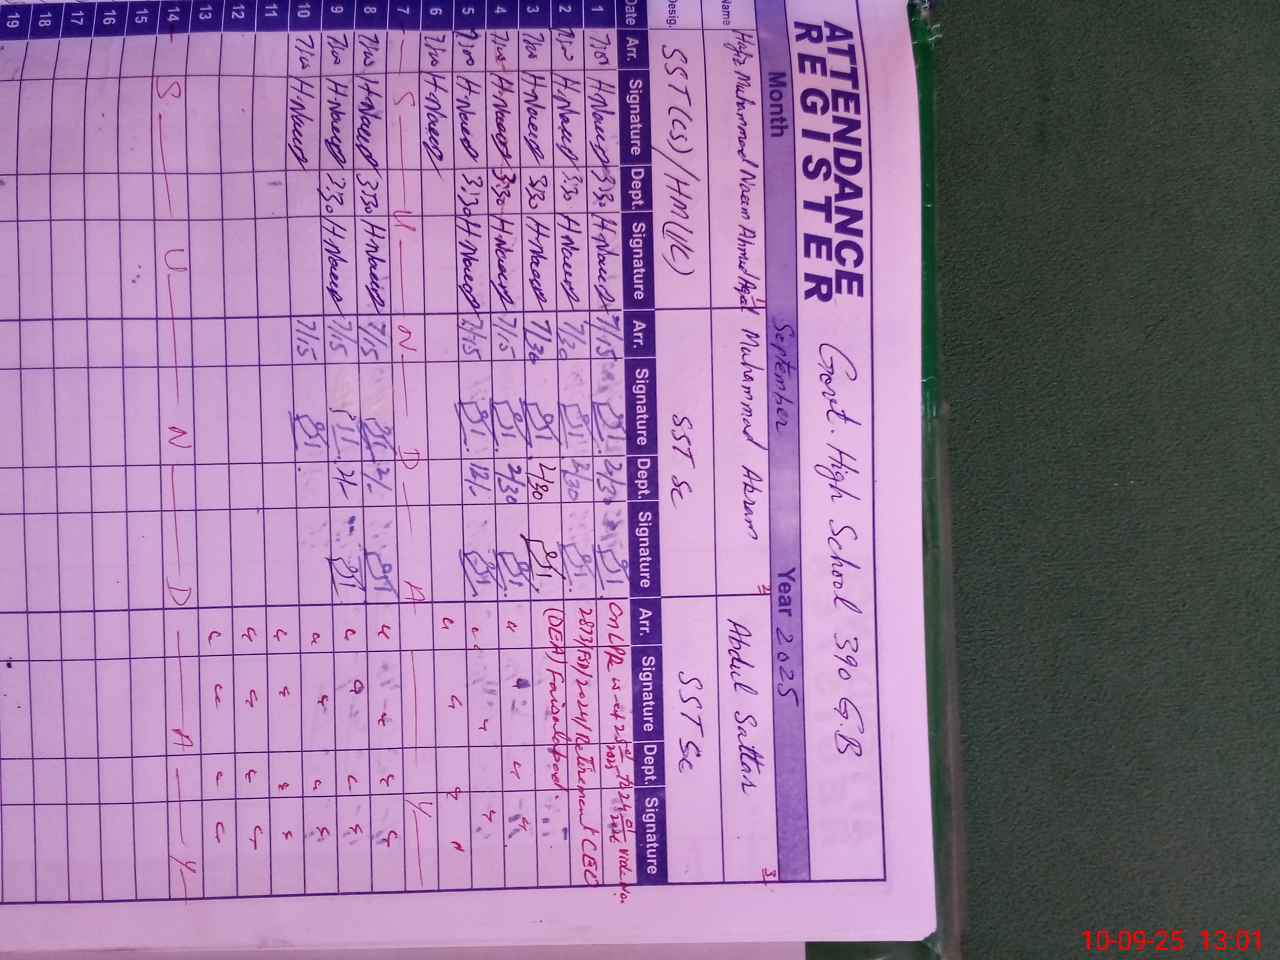 ATTENDANCE
REGISTER
Govt. High School 390 G.B
Month September Year 2025
Name Hafiz Muhammad Naeem Ahmed 1 Muhammad Akram 2 Abdul Sattar 3
Desig. SST(CS)/HM(I/C) SST Sc SST Sc
Date Arr. Signature Dept. Signature Arr. Signature Dept. Signature Arr. Signature Dept. Signature
1 7/00 H.Naeem 3:30 H.Naeem 7/15 2/30 On LPR
2 7/00 H.Naeem 3:30 H.Naeem 7/30 2/30 2873/FSD/2024/Retirement CEO
3 7/00 H.Naeem 3:30 H.Naeem 7/30 2/30 (DEA) Faisalabad.
4 7/00 H.Naeem 3:30 H.Naeem 7/15 2/30
5 7/00 H.Naeem 3:30 H.Naeem 7/15 12/-
6 7/00 H.Naeem
7 S U N D A Y
8 7/00 H.Naeem 3:30 H.Naeem 7/15 2/-
9 7/00 H.Naeem 3:30 H.Naeem 7/15 2/-
10 7/00 H.Naeem 7/15
11
12
13
14 S U N D A Y
15
16
17
18
19
10-09-25 13:01